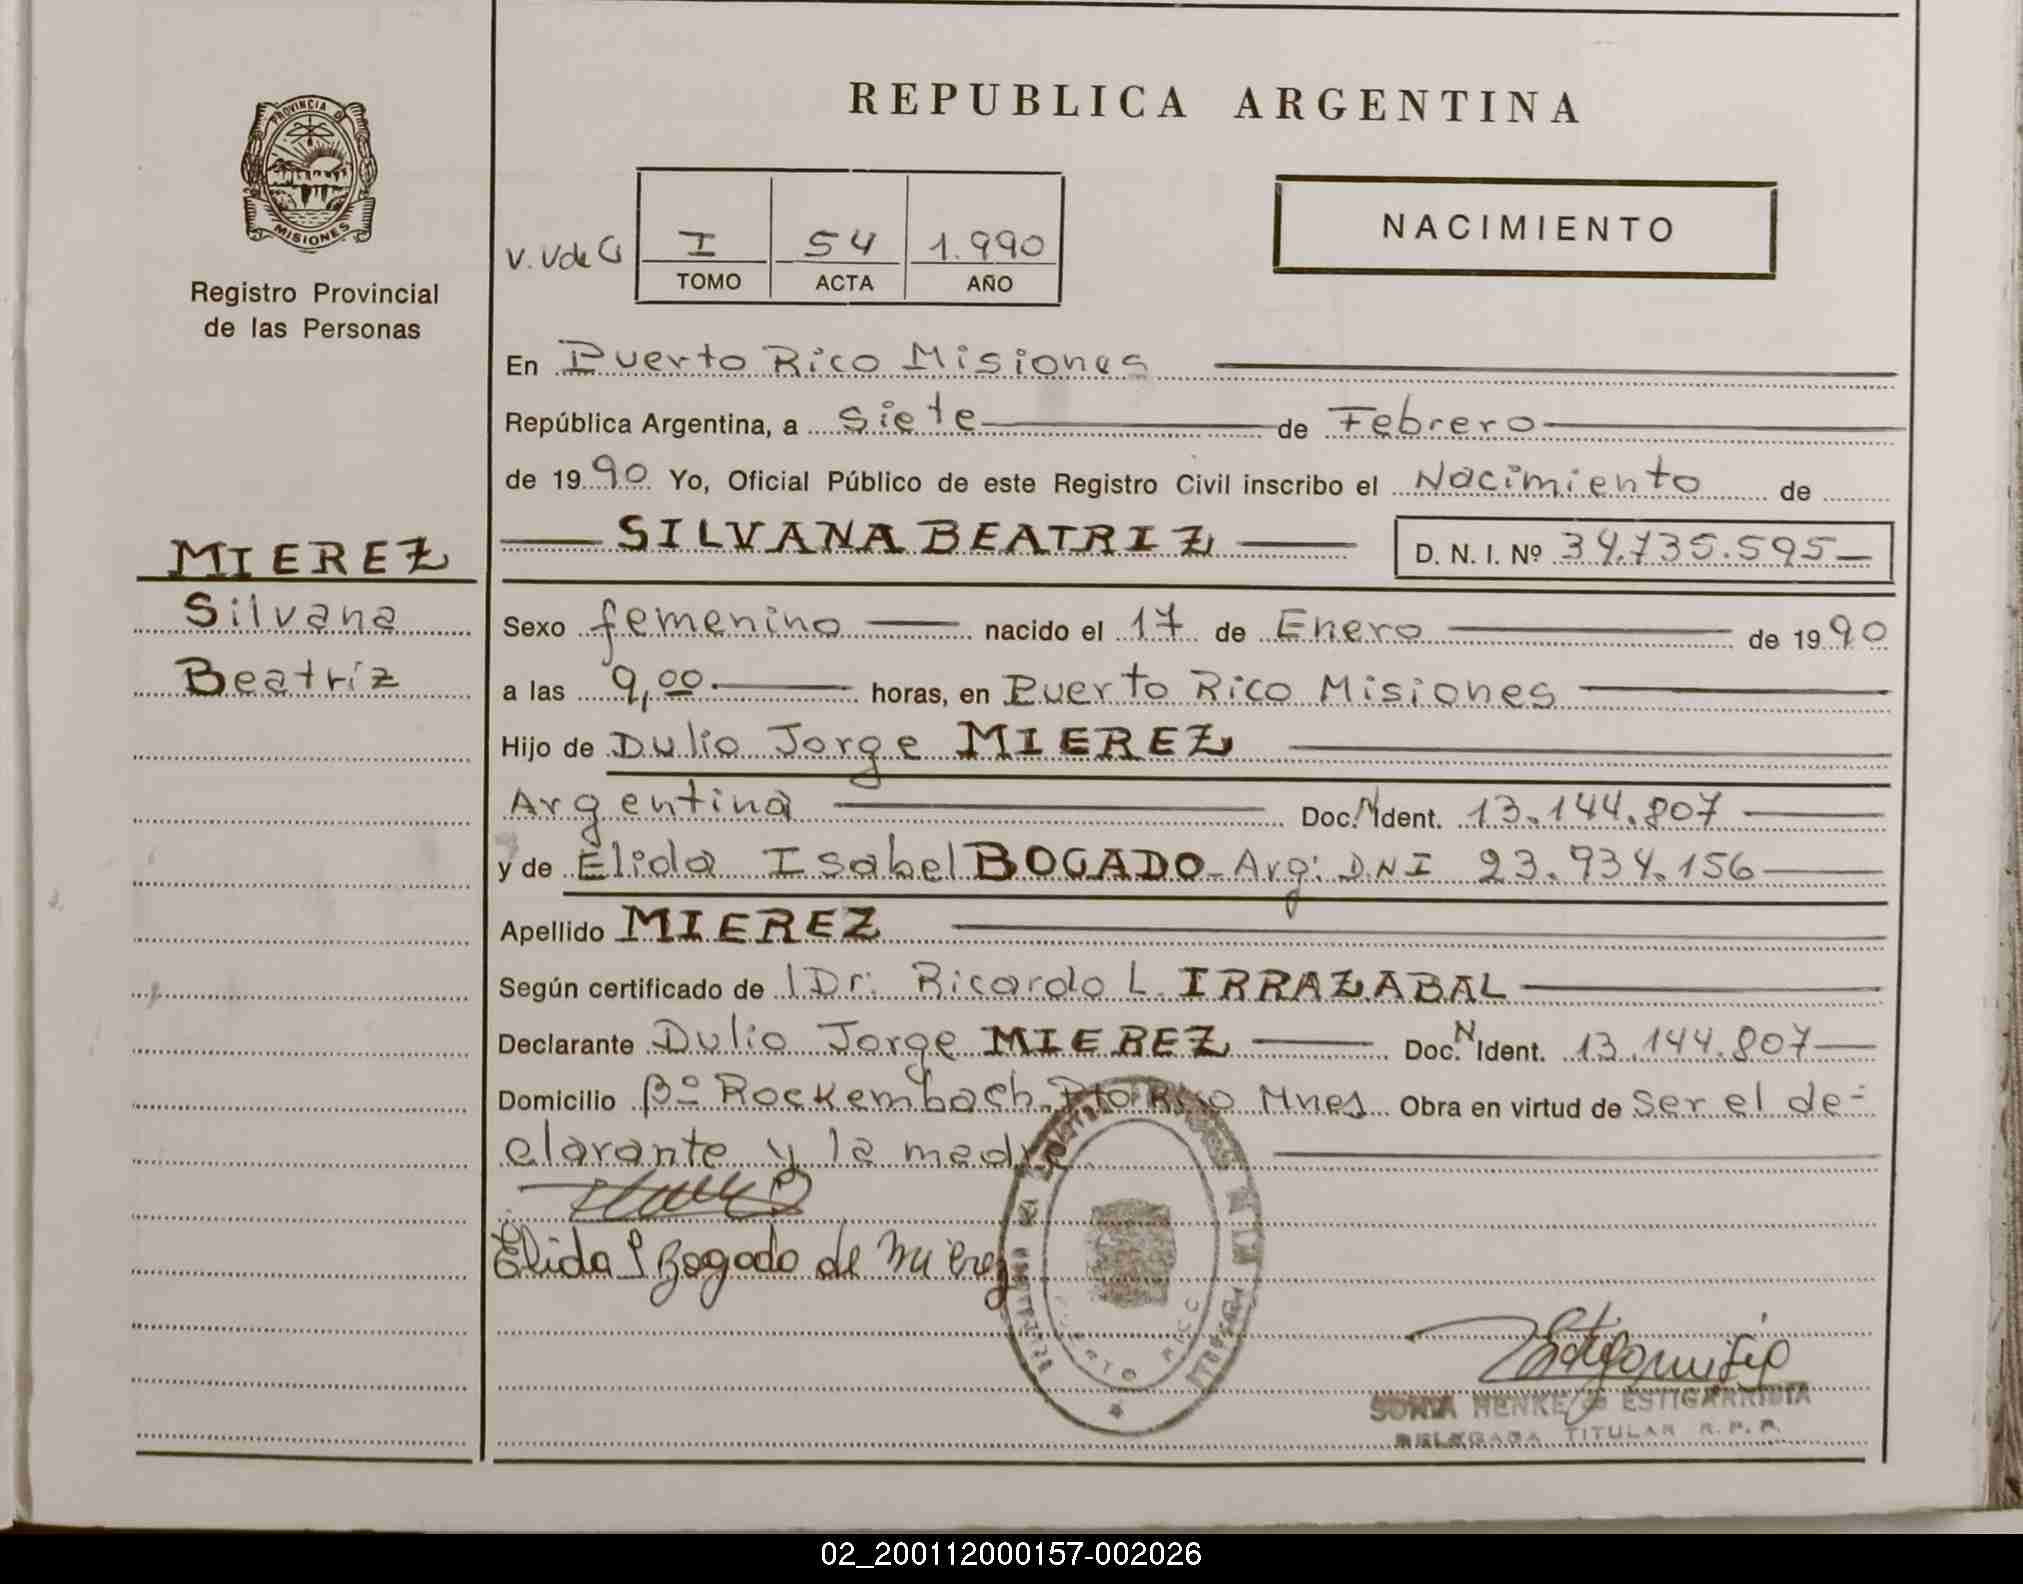 REPUBLICA ARGENTINA
PROVINCIA DE
MISIONES
Registro Provincial
de las Personas
V. Vde G
I 54 1.990
TOMO ACTA AÑO
NACIMIENTO
En Puerto Rico Misiones
República Argentina, a Siete de Febrero
de 1990 Yo, Oficial Público de este Registro Civil inscribo el Nacimiento de
SILVANA BEATRIZ D. N. I. Nº 34.735.595
MIEREZ
Silvana
Beatriz
Sexo femenino nacido el 17 de Enero de 1990
a las 9,00 horas, en Puerto Rico Misiones
Hijo de Dulio Jorge MIEREZ
Argentina Doc. N Ident. 13.144.807
y de Elida Isabel BOGADO - Arg: DNI 23.934.156
Apellido MIEREZ
Según certificado de Dr. Ricardo L. IRRAZABAL
Declarante Dulio Jorge MIEREZ Doc. N Ident. 13.144.807
Domicilio Bº Rockembach Pto Rico Mnes Obra en virtud de Ser el de-
clarante y la madre
Elida I Bogado de Mierez
SONIA HENKE de ESTIGARRIBIA
DELEGADA TITULAR R.P.P.
02_200112000157-002026